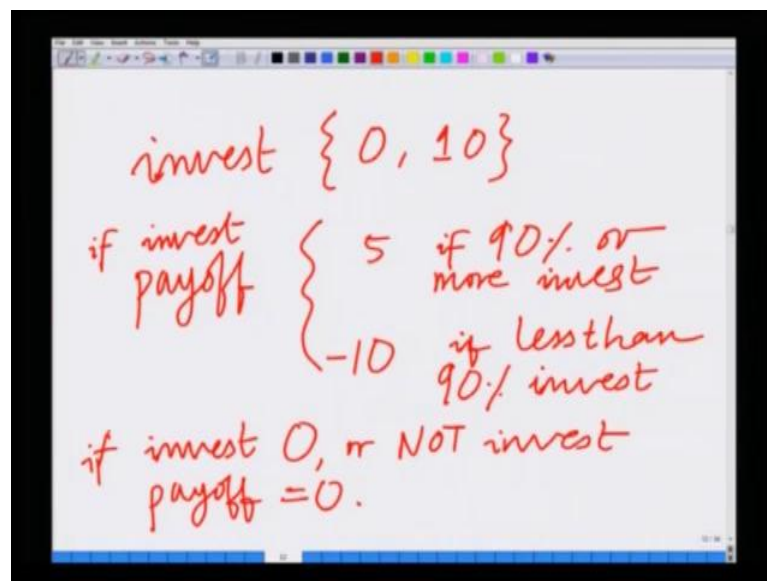 invest { 0, 10 }
if invest payoff { 5 if 90% or more invest
-10 if less than 90% invest
if invest 0, or NOT invest
payoff = 0.